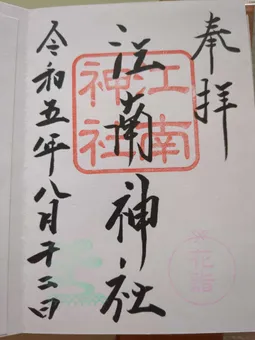 奉拝
江南神社
江南神社
令和五年八月十二日
花詣